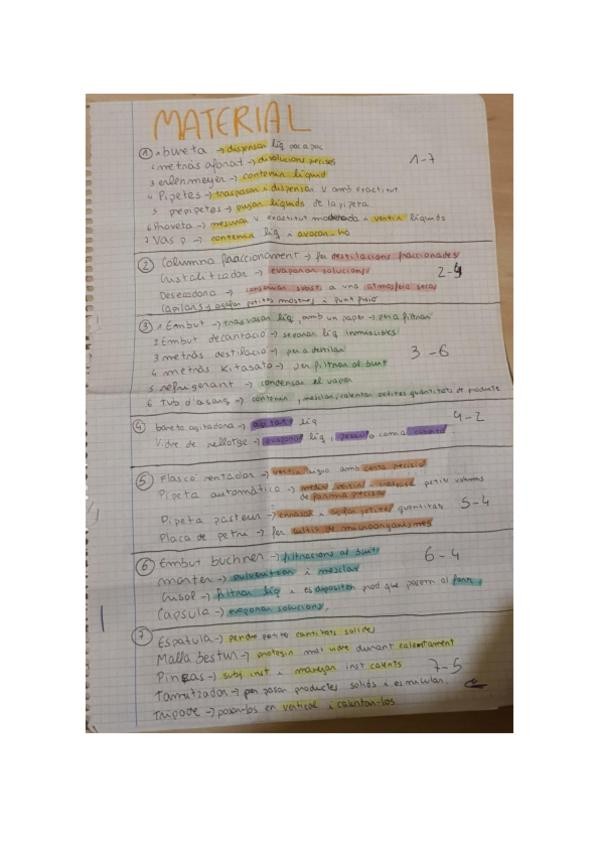 MATERIAL
① 1 bureta → dispensar líq poc a poc
2 matràs aforat → disolucions precises 1-7
3 erlenmeyer → contenir líquid
4 Pipetes → traspasar i dispensar V amb exactitut
5 prepipetes → pujar líquids de la pipeta
6 Proveta → mesurar V exactitut moderada i vertir líquids
7 Vas p → contenir líq i avocar-ho
② Columna fraccionament → fer destilacions fraccionades
Cristalitzador → evaporar solucions 2-4
Desecadora → conservar subst a una atmosfera seca
Capilars → agafar petites mostres i punt fusió
③ 1 Embut → transvasar líq, amb un paper → per a filtrar
2 Embut decantació → separar líq inmiscibles
3 matràs destilació → per a destilar 3-6
4 matràs Kitasato → per filtrar al buit
5 refrigerant → condensar el vapor
6 Tub d'asaig → contenir, mesclar, calentar petites quantitats de producte
④ bareta agitadora → agitar líq 4-2
Vidre de rellotge → evaporar líq, pesar o com a
⑤ Flascó rentador → vertir aigua amb certa precisió
Pipeta automàtica → medir vertir i petits volumens
de forma precisa
Pipeta pasteur → i agafar petites quantitats 5-4
Placa de petri → fer cultiu de microorganismes
⑥ Embut buchner → filtracions al buit 6-4
morter → pulveritzar i mesclar
Crisol → filtrar líq i es diposita prod que posem al
Capsula → evaporar solucions,
⑦ Espatula → pendre petites cantitats solides
Malla Bestur → protegir mat vidre durant calentament
Pinças → subj inst i manejar inst calents 7-5
Tamitzador → per pasar productes solids i
Trípode → posar-los en vertical i calentar-los